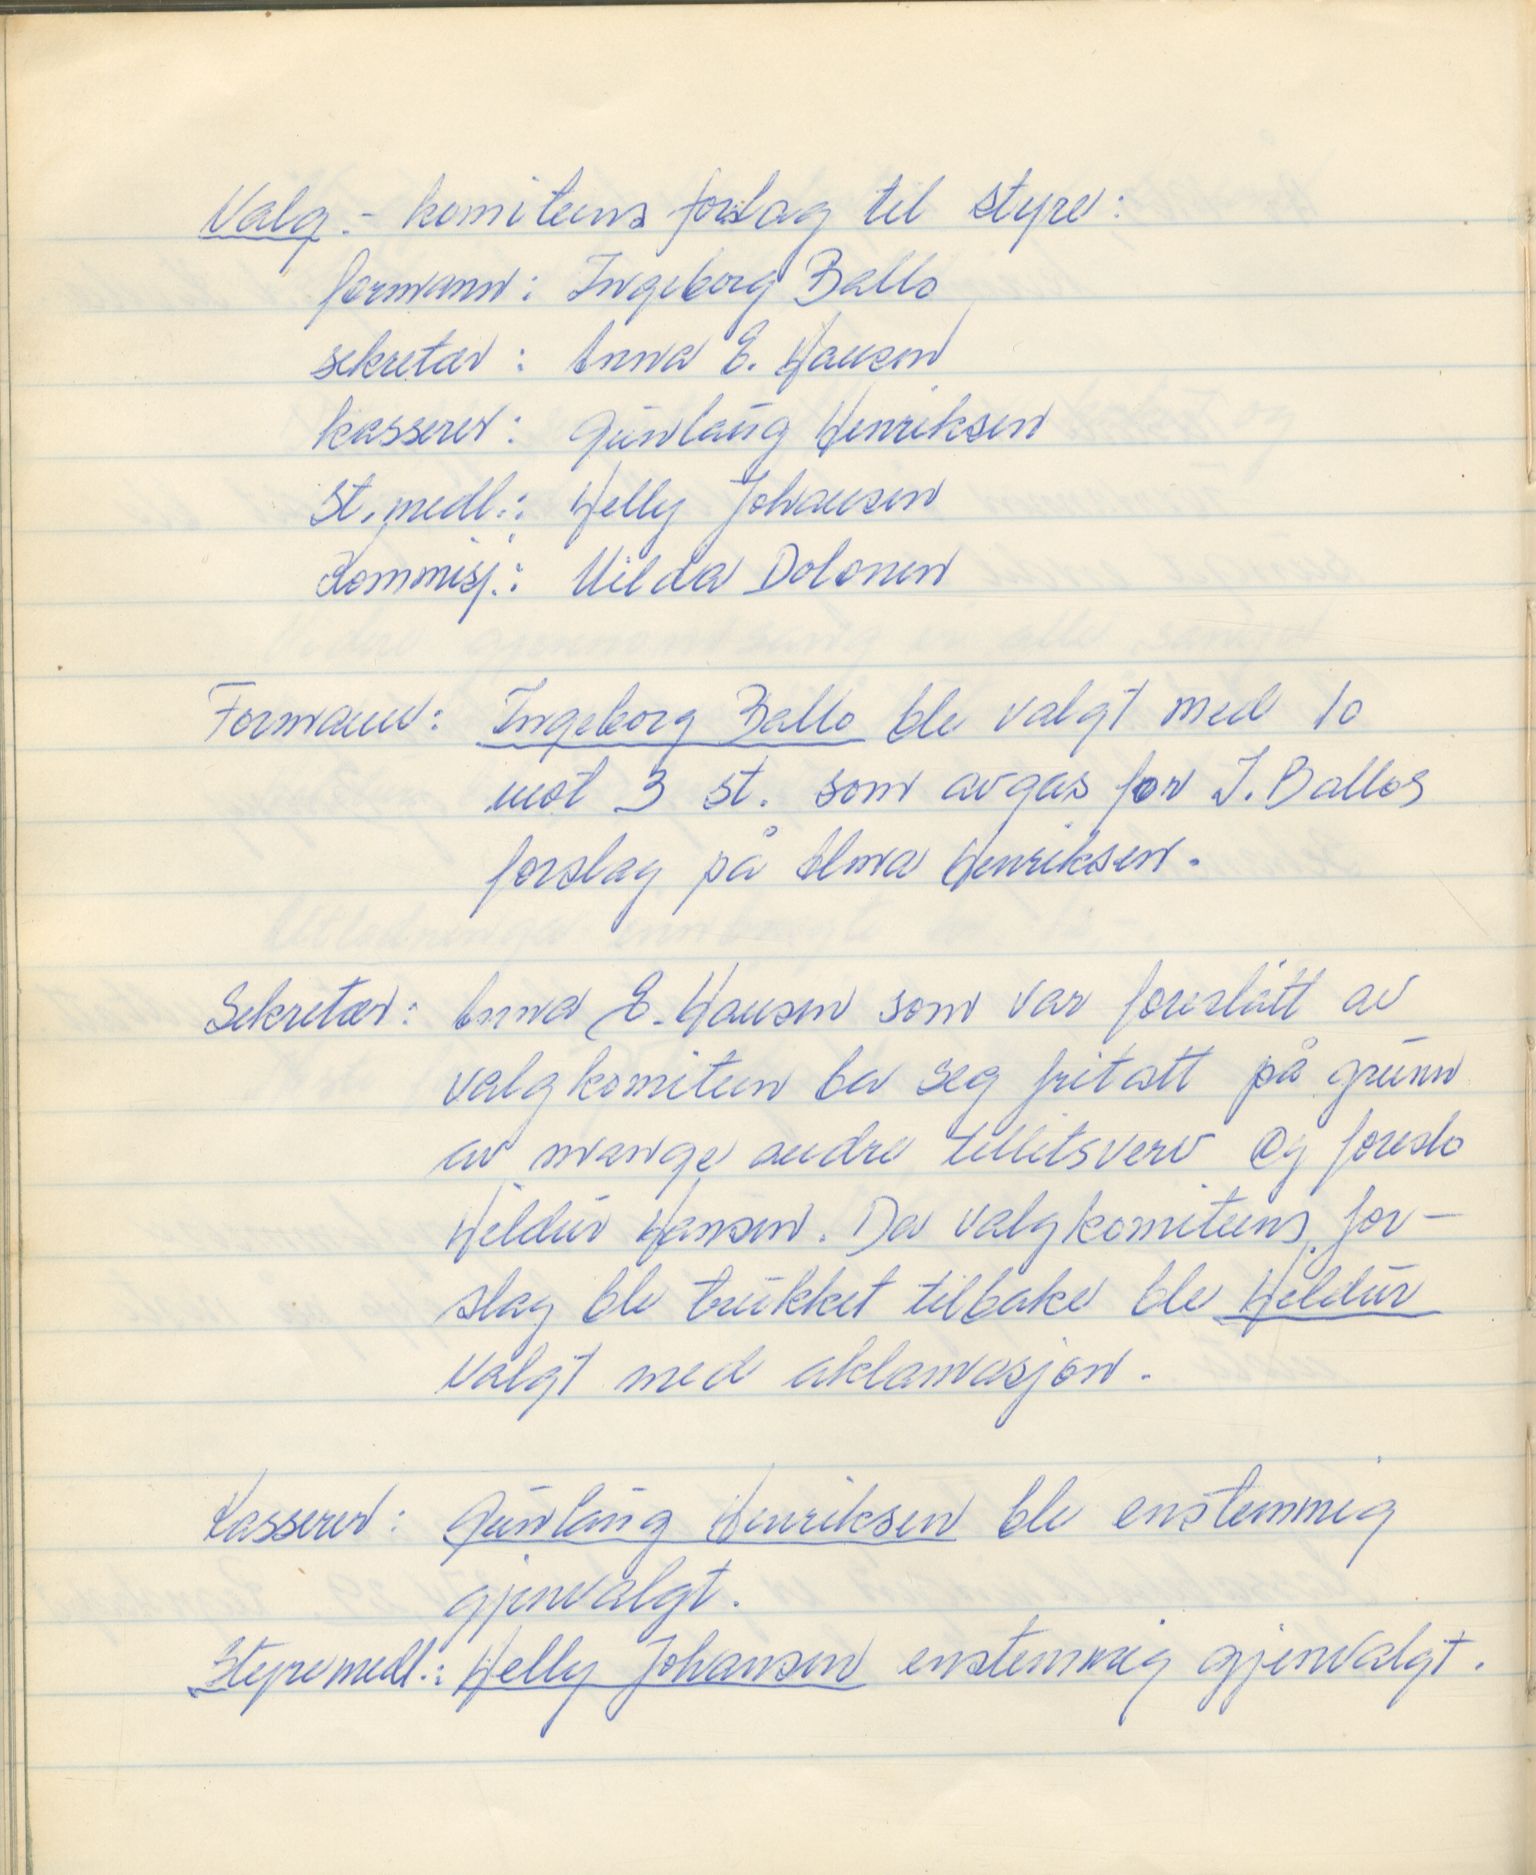 Valg - komiteens forslag til styre:
formann: Ingeborg Ballo
sekretær: Anna E. Hansen
kasserer: Gunlaug Henriksen
St. medl.: Helly Johansen
Kommisj.: Milda Dolonen
Formann: Ingeborg Ballo ble valgt med 10
mot 3 st. som avgas for I. Ballos
forslag på Alma Henriksen.
Sekretær: Anna E. Hansen som var foreslått av
valgkomiteen ba seg fritatt på grunn
av mange andre tillitsverv og foreslo
Hildur Hansen. Da valgkomiteens for-
slag ble trukket tilbake ble Hildur
valgt med aklamasjon.
Kasserer: Gunlaug Henriksen ble enstemmig
gjenvalgt.
Styremedl.: Helly Johansen enstemmig gjenvalgt.